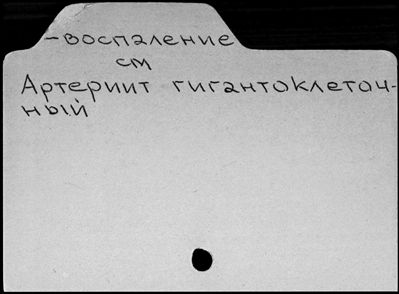 -воспаление
см
Артериит гигантоклеточ-
ный